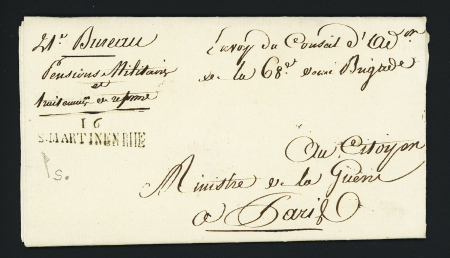 21e Bureau
Pensions Militaires
et
traitements de reforme
16
S.MARTINENRHE
Envoy du Conseil d'Adon
de la 68e demi Brigade
Au Citoyen
Ministre de la Guerre
a Paris